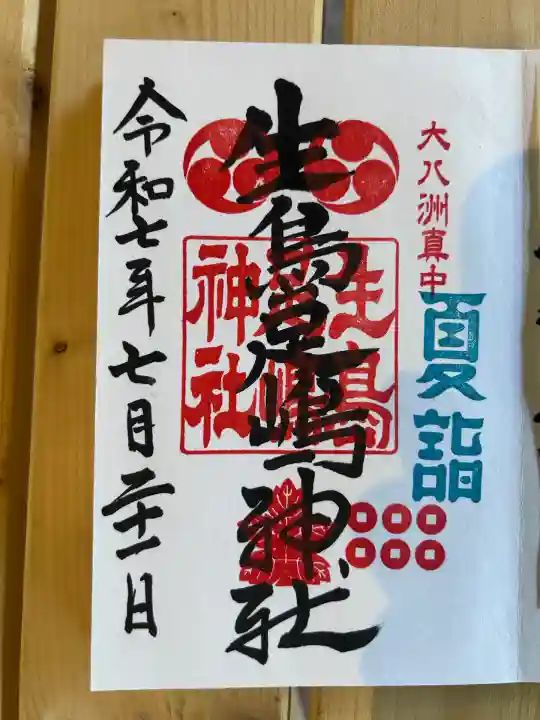 大八洲真中
夏詣
生島足嶋神社
生島足島神社
令和七年七月二十一日